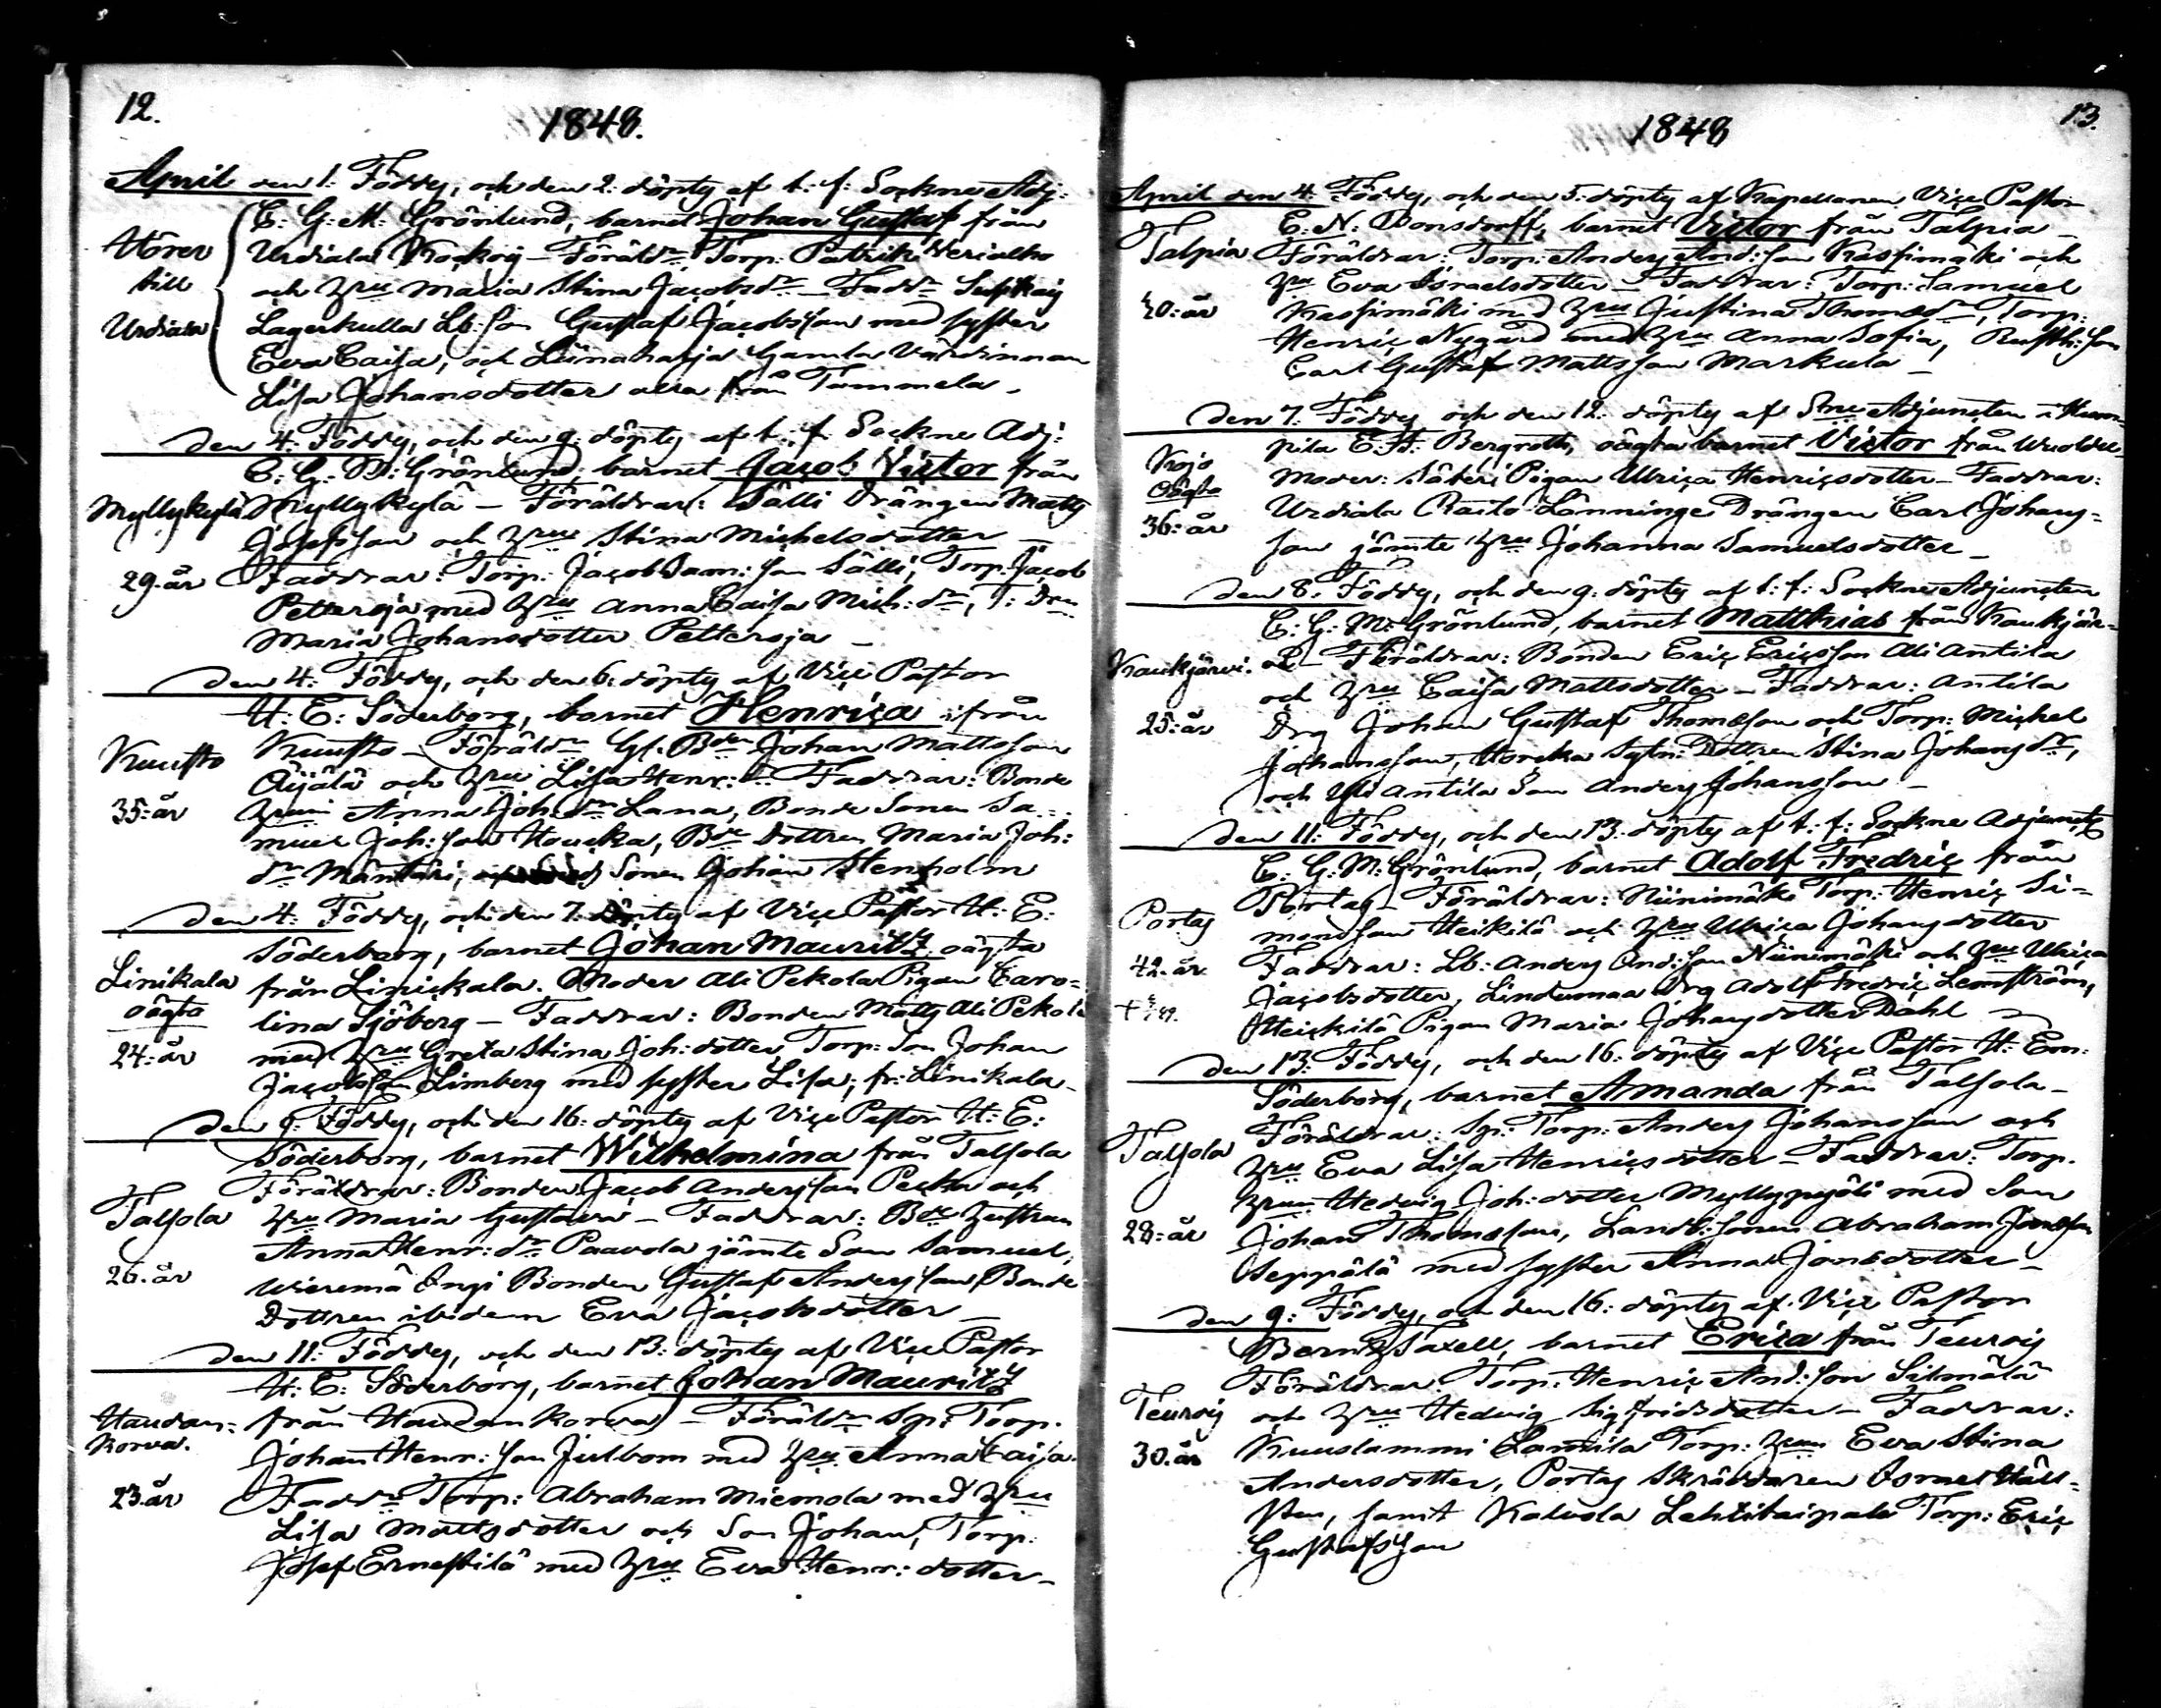 12.
1848.
April den 1: Föddes, och den 2: döptes af t: f: Sockne Adj:
C: G: M: Grönlund, barnet Johan Gustaf från
Hörer
till
Urdiala
Urdiala – Föräldr Torp: Patrik
och hru Maria Stina Jacobsdr – Faddr
Lagerkulla Lb: son Gustaf Jacobsson med syster
Eva Caisa, och Liinaharja Gamla Värdinnan
Lisa Johansdotter alla från Tammela –
den 4: Föddes, och den 9: döptes af t: f: Sockne Adj:
C: G: M: Grönlund, barnet Jacob Victor från
Myllykylä
Myllykylä – Föräldrar: Sälli Drängen Matts
Josefsson och hru Stina Michelsdotter –
29: år
Faddrar: Torp: Jacob Sam: son Sälli, Torp: Jacob
Pettersja med hru Anna Caisa Mich: dr, T: Drn
Maria Johansdotter Pettersja –
den 4: Föddes, och den 6: döptes af Vice Pastor
H: E: Söderborg, barnet Henrica ifrån
Kuusto
Kuusto – Föräldr Gl. Bdn Johan Mattsson
Äijälä och hru Lisa Henr: dr Faddrar: Bonde
35: år
hrun Anna Joh: dr Lana, Bonde Sonen Sa-
muel Joh: son Houcka, Bde Dottren Maria Joh:
dr Mäntäri, Sonen Johan Stenholm
den 4: Föddes, och den 7: döptes af Vice Pastor H: E:
Söderborg, barnet Johan Mauritz, oägta
Linikala
oägta
från Linickala. Moder Ali Pekola Pigan Caro-
lina Sjöberg – Faddrar: Bonden Matts Ali Pekola
24: år
med hru Greta Stina Joh: dotter, Torp: Son Johan
Jacobsson Limberg med syster Lisa, fr: Linikala –
den 9: Föddes, och den 16: döptes af Vice Pastor H: E:
Söderborg, barnet Wilhelmina från Talsola
Föräldrar: Bonden Jacob Andersson Pecka och
Talsola
hru Maria Gustava – Faddrar: Bde hustrun
Anna Henr: dr Paavola jämte Son Samuel,
26: år
Wieremä Ingi Bonden Gustaf Andersson, Bonde
Dottren ibidem Eva Jacobsdotter –
den 11: Föddes, och den 13: döptes af Vice Pastor
H: E: Söderborg, barnet Johan Mauritz
Haudan-
korva.
från Haudankorva – Föräldr Sp: Torp.
Johan Henr: son Julbom med hru Anna Caisa.
23 år
Faddr Torp: Abraham Miemola med hru
Lisa Mattsdotter och Son Johan, Torp:
Josef Ernestilä med hru Eva Henr: dotter –
1848
13.
April den 4: Föddes, och den 5: döptes af Kapellanen Vice Pastor
E: N: Bonsdorff, barnet Victor från Talpia –
Talpia
Föräldrar: Torp: Anders And: son Kassimäki och
hru Eva Israelsdotter – Faddrar: Torp: Samuel
40: år
Kassimäki med hru Justina Thomædr, Torp:
Henric Nygård med hru Anna Sofia, Rusth: son
Carl Gustaf Mattsson Markula –
den 7: Föddes, och den 12: döptes af Sne Adjuncten i Hum-
pila E: H: Bergroth, oägta barnet Victor från
Kojo
Oägta
Moder: Säteri Pigan Ulrica Henricsdotter – Faddrar:
36: år
Urdiala Raito Länninge Drängen Carl Johans-
son jämte hru Johanna Samuelsdotter –
den 8: Föddes, och den 9: döptes af t: f: Sockne Adjuncten
C: G: M: Grönlund, barnet Matthias från Kaukjär-
Kaukjärvi.
vi – Föräldrar: Bonden Eric Ericsson Ali Antila
och hru Caisa Mattsdotter – Faddrar: Antila
25: år
Drg Johan Gustaf Thomæson och Torp: Michel
Johansson, Horcka Sytn: Dottren Stina Johansdr,
och Yli Antila Son Anders Johansson –
den 11: Föddes, och den 13: döptes af t: f: Sockne Adjunct
C: G: M: Grönlund, barnet Adolf Fredric från
Portas
Portas – Föräldrar: Niinimäki Torp: Henric Si-
monsson Heikilä och hru Ulrica Johansdotter
42: år.
Faddrar: Lb: Anders And: son Niinimäki och hru Ulrica
Jacobsdotter, Lindumaa Drg Adolf Fredric Lemström,
Heickilä Pigan Maria Johansdotter Dahl –
den 13: Föddes, och den 16: döptes af Vice Pastor H: Em:
Söderborg, barnet Amanda från Talsola –
Talsola
Föräldrar: Sp: Torp: Anders Johansson och
hru Eva Lisa Henricsdotter – Faddrar: Torp.
hrun Hedvig Joh: dotter Myllypyöli med Son
28: år
Johan Thomæson, Landb: sonen Abraham Jonsson
Seppälä med syster Anna Jonsdotter –
den 9: Föddes, och den 16: döptes af Vice Pastor
Bernh Saxell, barnet Erica från Teurois
Föräldrar: Torp: Henric And: son Silmälä
Teurois
och hru Hedvig Sigfridsdotter – Faddrar:
30: år
Kuuslammi Lamila Torp: hrun Eva Stina
Andersdotter, Portas Skräddaren Israel Häll-
sten, samt Kalvola Lehtitaipale Torp: Eric
Gustafsson